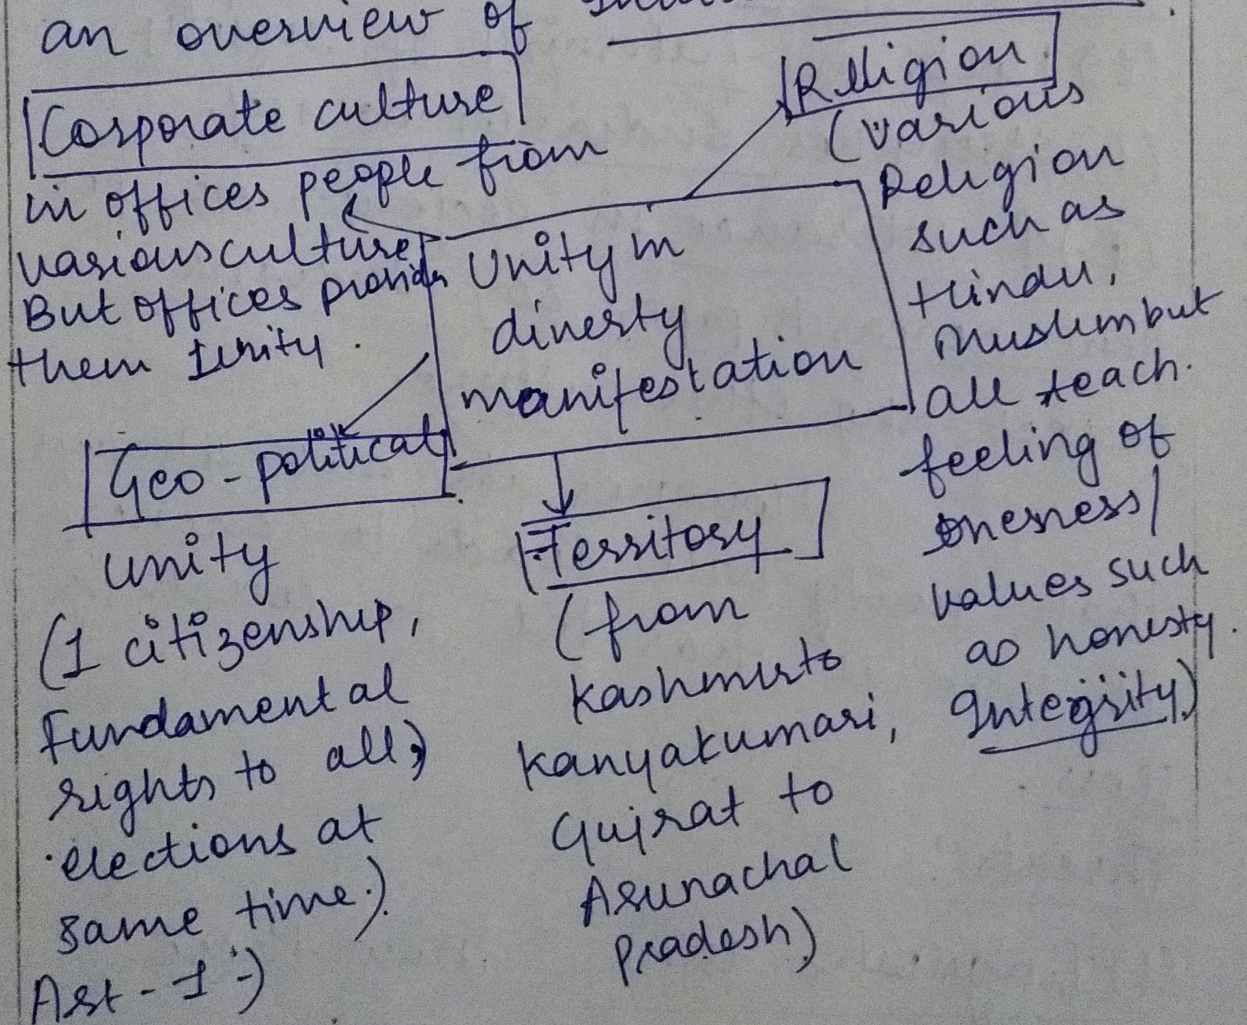 an overview of
Corporate culture
in offices people from
various culture
But offices provides
them Unity.
Religion
(various
Religion
such as
Hindu,
Muslim but
all teach
feeling of
oneness/
values such
as honesty.
Integrity)
Unity in
diversty
manifestation
Geo-political
unity
(1 citizenship,
Fundamental
rights to all,
elections at
same time.)
Art-1:-)
Territory
(from
Kashmir to
Kanyakumari,
Gujrat to
Arunachal
Pradesh)